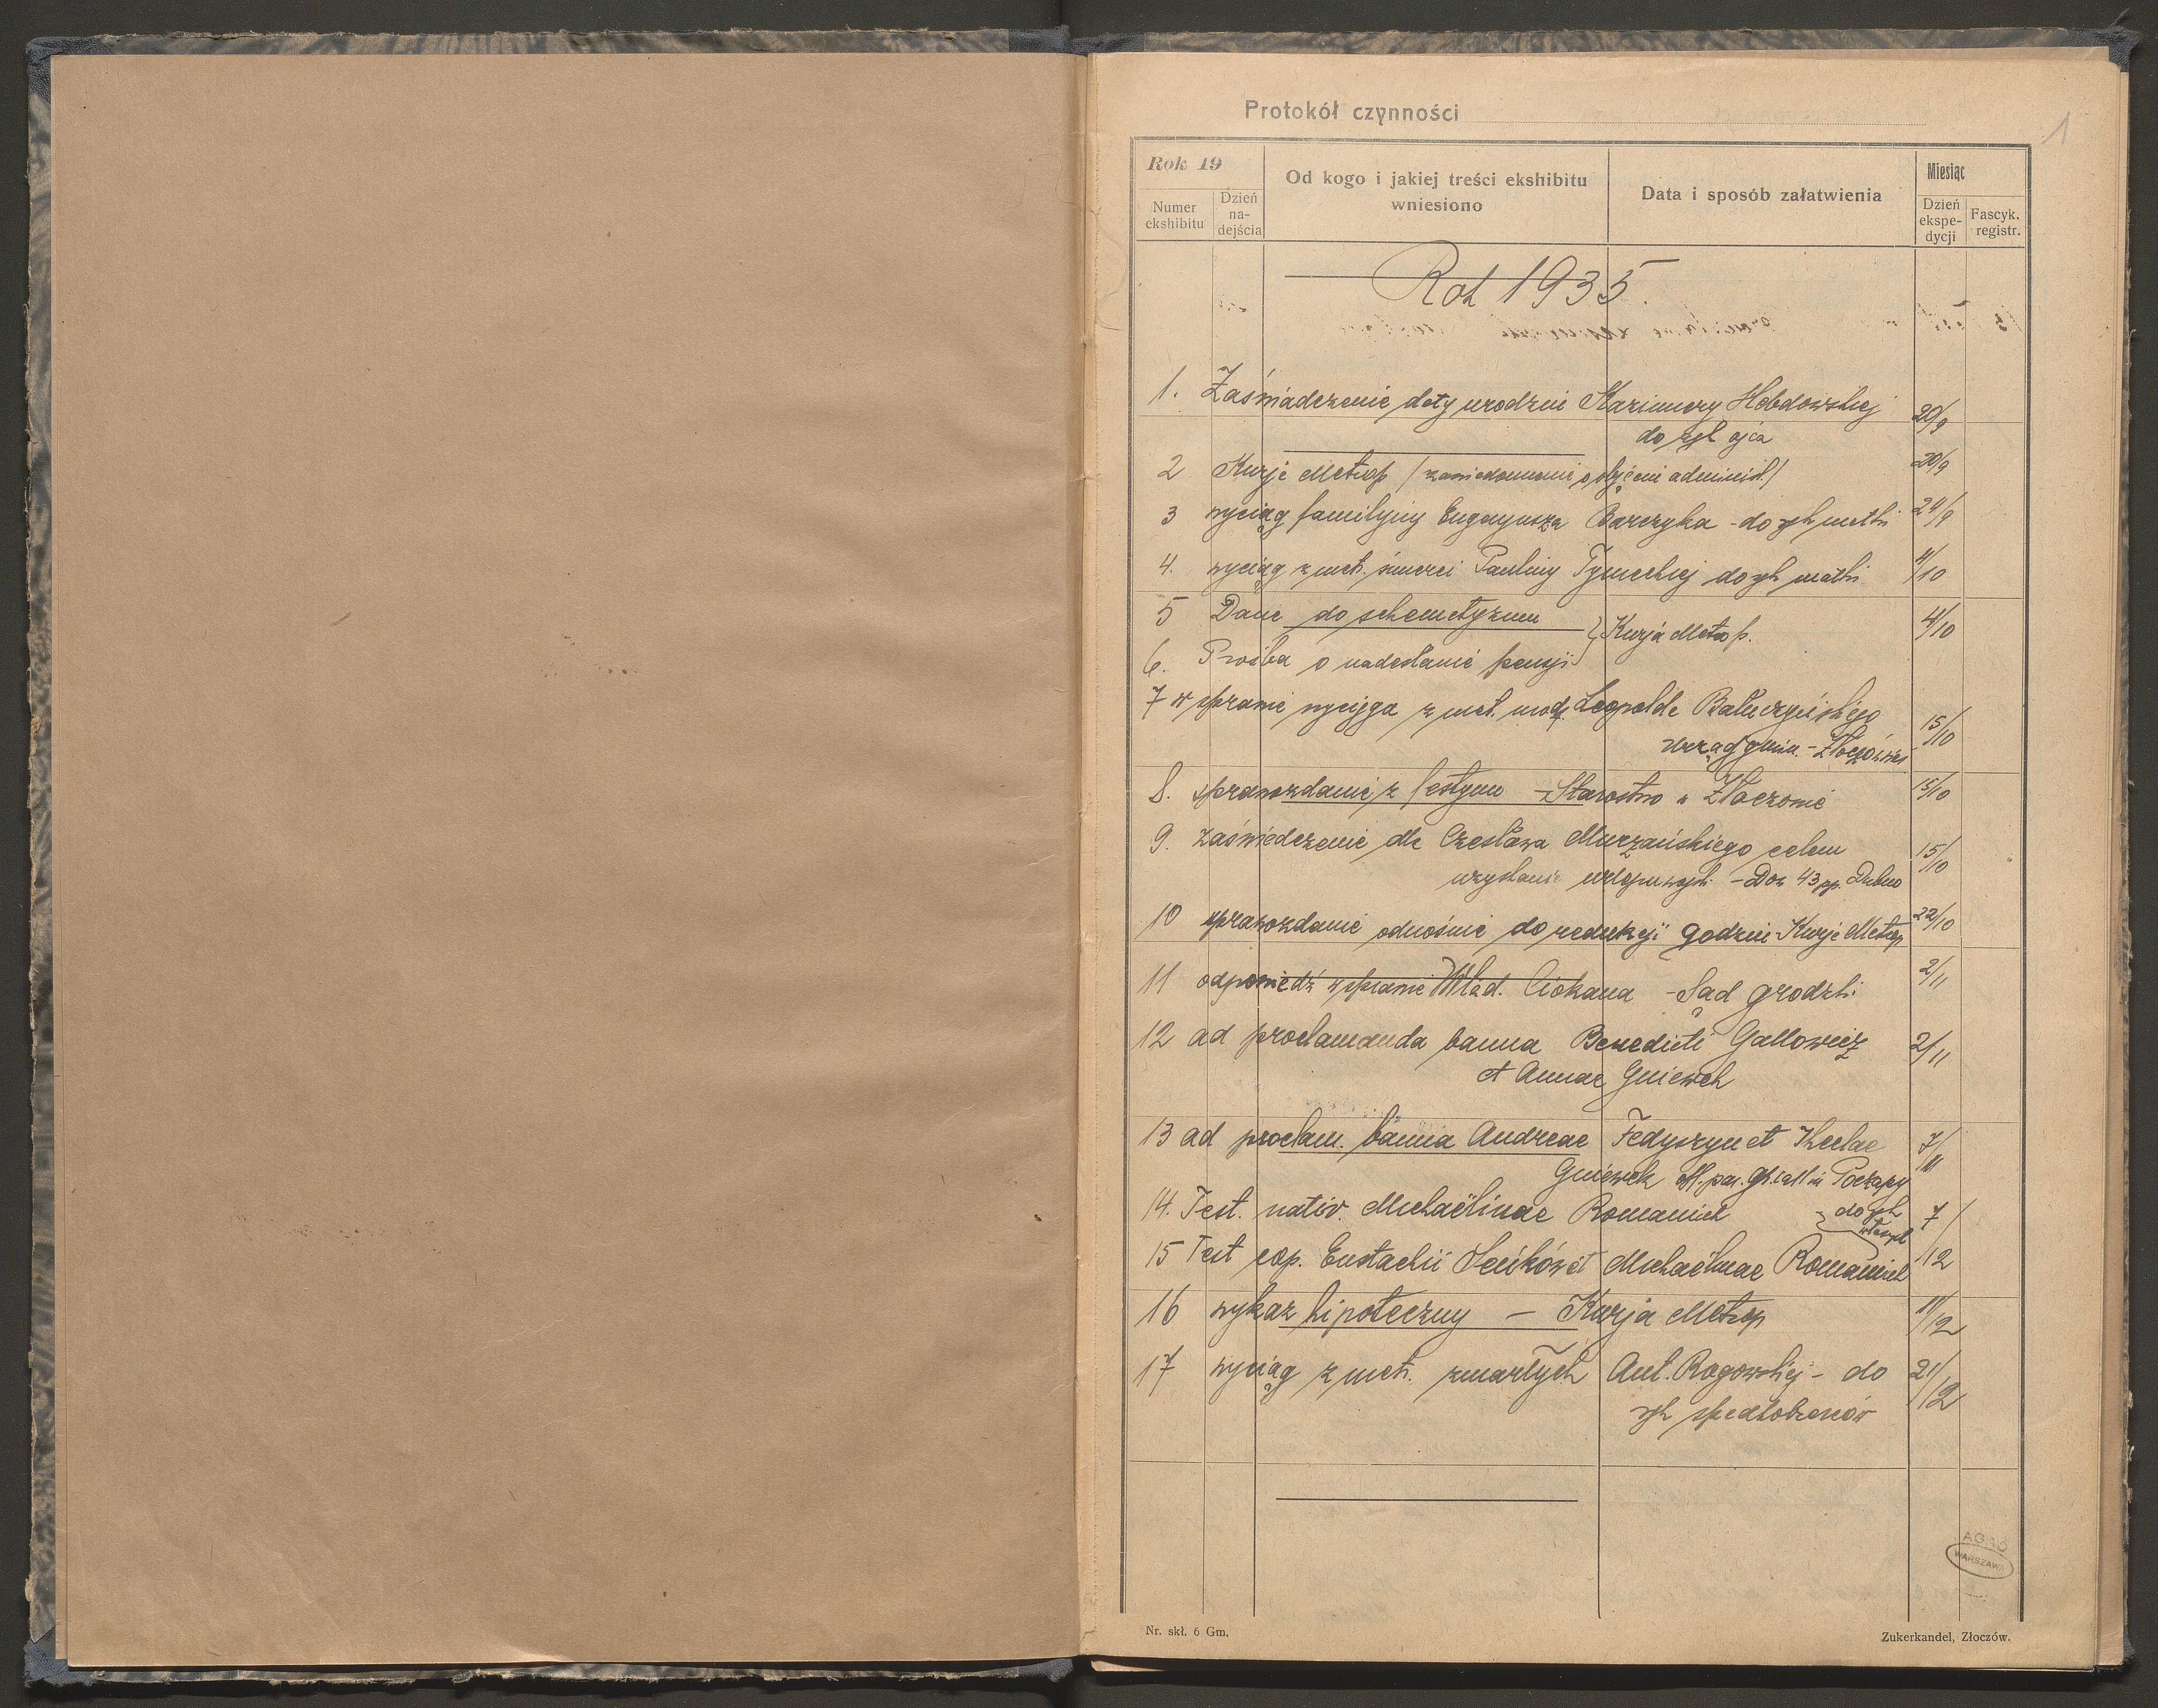 1
Protokół czynności
Rok 19
Numer ekshibitu
Dzień na-dejścia
Od kogo i jakiej treści ekshibitu wniesiono
Data i sposób załatwienia
Miesiąc
Dzień ekspe-dycji
Fascyk. registr.
Rok 1935.
1. Zaświadczenie daty urodzin Kazimiery Hebdowskiej 20/9
do rąk ojca
2 Kurje Metrop / zawiadomienie o objęciu administ./ 20/9
3 wyciąg familijny Eugenjusza Barczyka - do rąk matki 24/9
4. wyciąg z metr. śmierci Pauliny Tymeckiej do rąk matki 4/10
5 Dane do schematyzmu } Kurja Metrop. 4/10
6. Prośba o nadesłanie pensji
7 w sprawie wyciągu z met. urodz. Leopolda 15/10
urząd gmin. -
8. sprawozdanie z festynu - Starostwo w Złoczowie 15/10
9. zaświadczenie dla Czesława Murzańskiego celem 15/10
uzyskania - Dow 43 pp. Dubno
10 sprawozdanie odnośnie do redukcji godzin - Kurje Metrop 22/10
11 odpowiedź w sprawie Wład. Ciokana - Sąd grodzki 2/11
12 ad proclamanda banna Benedicti Gallowicz 2/11
et Annae Gniewek
13 ad proclam. banna Andreae Fedyszyn et Theclae 7/11
Gniewek off. par. gr. cath in Poczapy
14. Test. nativ. Michaëlinae Romaniek } do rąk 7/12
własnych
15 Test cop. Eustachii Senków et Michaëlinae Romaniek
16 wykaz hipoteczny - Kurja Metrop 11/12
17 wyciąg z metr. zmarłych Ant. Rogowskiej - do 21/12
rąk spadkobierców
AGAD
WARSZAWA
Nr. skł. 6 Gm.
Zukerkandel, Złoczów.